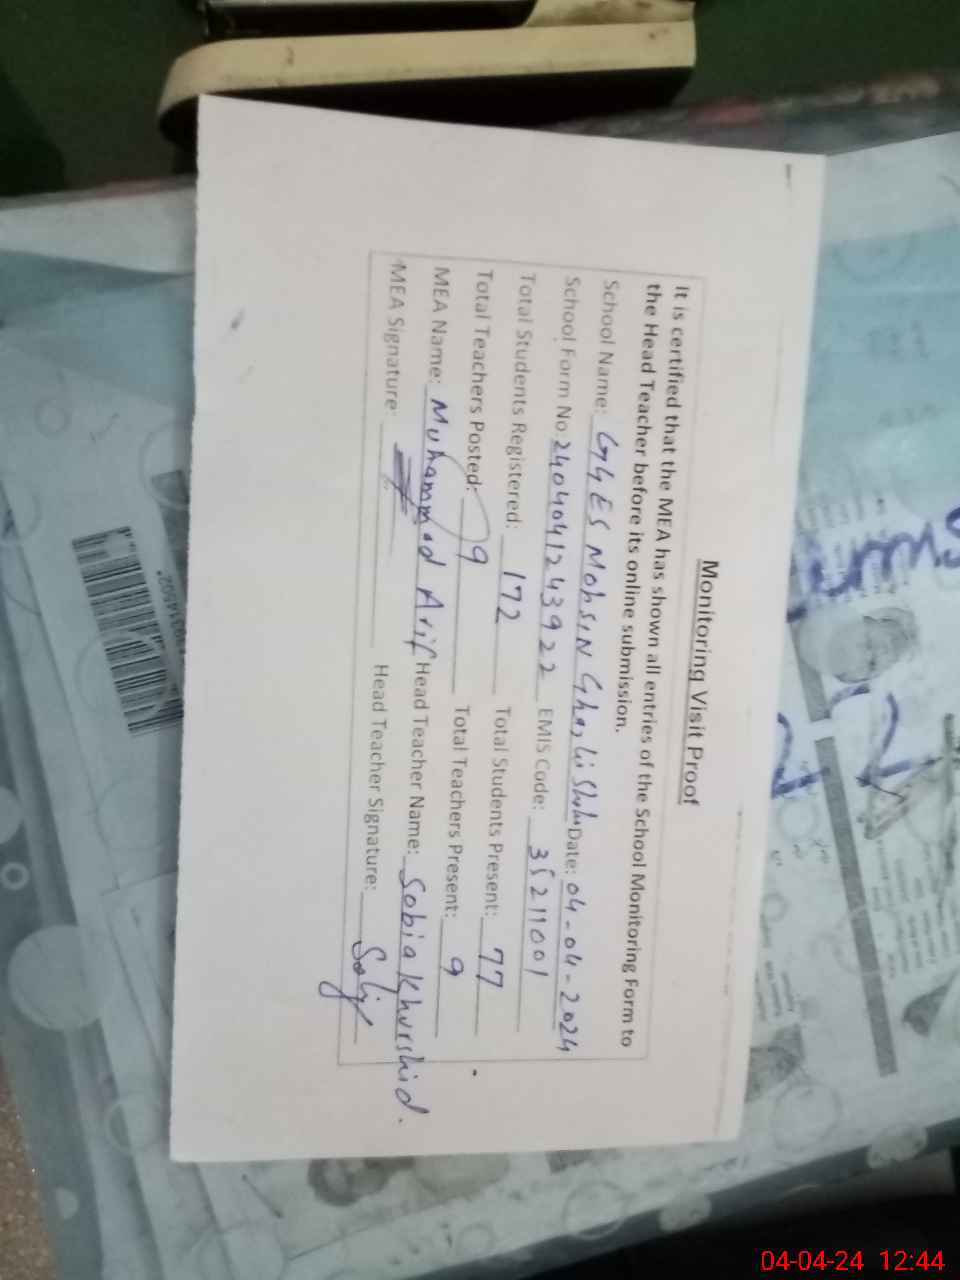 Monitoring Visit Proof
It is certified that the MEA has shown all entries of the School Monitoring Form to
the Head Teacher before its online submission.
School Name: GGES Mohsin Date: 04-04-2024
School Form No: 2404041243922 EMIS Code: 35211001
Total Students Registered: 172 Total Students Present: 77
Total Teachers Posted: 9 Total Teachers Present: 9
MEA Name: Muhammad Arif Head Teacher Name: Sobia Khurshid.
MEA Signature: Head Teacher Signature:
04-04-24 12:44